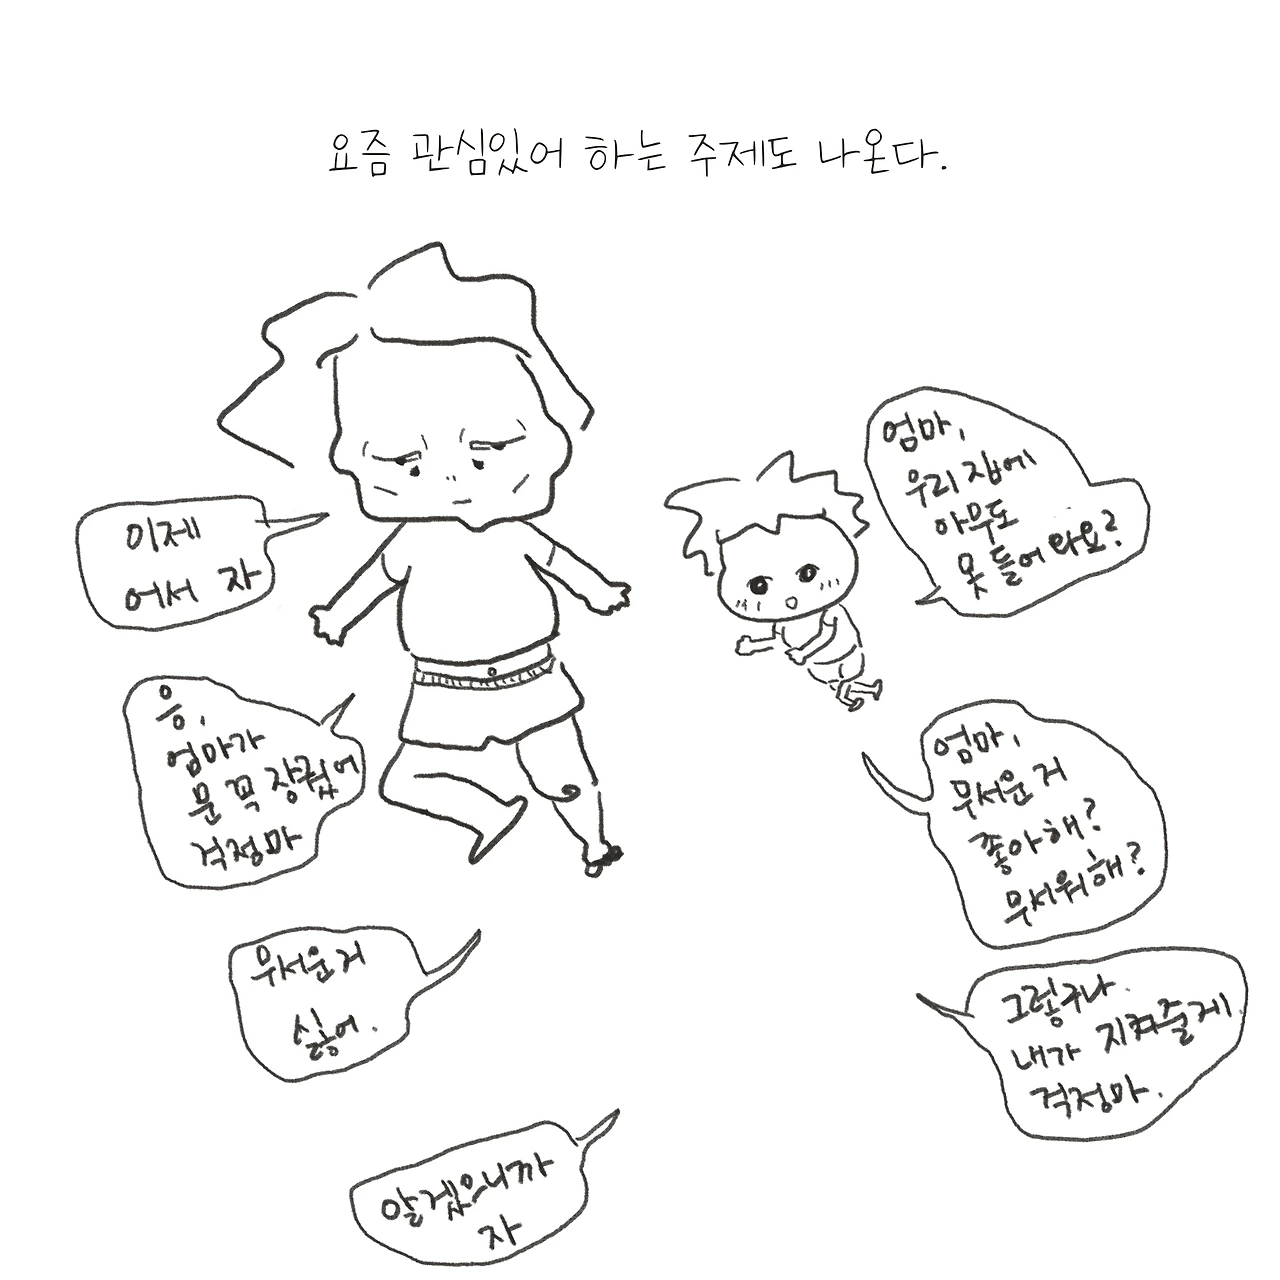 요즘 관심있어 하는 주제도 나온다.
이제
어서 자
엄마,
우리 집에
아무도
못 들어 와요?
응,
엄마가
문 꼭 장궜어
걱정마
엄마,
무서운 거
좋아해?
무서워해?
무서운 거
싫어.
그렇구나.
내가 지켜줄게.
걱정마.
알겠으니까
자